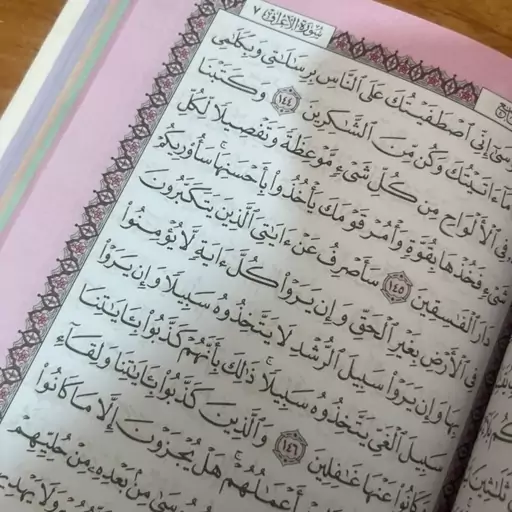 سُورَةُ الأَعْرَافِ ٧
سَىٰٓ إِنِّى ٱصْطَفَيْتُكَ عَلَى ٱلنَّاسِ بِرِسَٰلَٰتِى وَبِكَلَٰمِى
مَآ ءَاتَيْتُكَ وَكُن مِّنَ ٱلشَّٰكِرِينَ ١٤٤ وَكَتَبْنَا
فِى ٱلْأَلْوَاحِ مِن كُلِّ شَىْءٍ مَّوْعِظَةً وَتَفْصِيلًا لِّكُلِّ
شَىْءٍ فَخُذْهَا بِقُوَّةٍ وَأْمُرْ قَوْمَكَ يَأْخُذُوا۟ بِأَحْسَنِهَا ۚ سَأُو۟رِيكُمْ
دَارَ ٱلْفَٰسِقِينَ ١٤٥ سَأَصْرِفُ عَنْ ءَايَٰتِىَ ٱلَّذِينَ يَتَكَبَّرُونَ
فِى ٱلْأَرْضِ بِغَيْرِ ٱلْحَقِّ وَإِن يَرَوْا۟ كُلَّ ءَايَةٍ لَّا يُؤْمِنُوا۟
بِهَا وَإِن يَرَوْا۟ سَبِيلَ ٱلرُّشْدِ لَا يَتَّخِذُوهُ سَبِيلًا وَإِن يَرَوْا۟
سَبِيلَ ٱلْغَىِّ يَتَّخِذُوهُ سَبِيلًا ۚ ذَٰلِكَ بِأَنَّهُمْ كَذَّبُوا۟ بِـَٔايَٰتِنَا
وَكَانُوا۟ عَنْهَا غَٰفِلِينَ ١٤٦ وَٱلَّذِينَ كَذَّبُوا۟ بِـَٔايَٰتِنَا وَلِقَآءِ
أَعْمَٰلُهُمْ ۚ هَلْ يُجْزَوْنَ إِلَّا مَا كَانُوا۟
سَىٰ مِنۢ بَعْدِهِۦ مِنْ حُلِيِّهِمْ